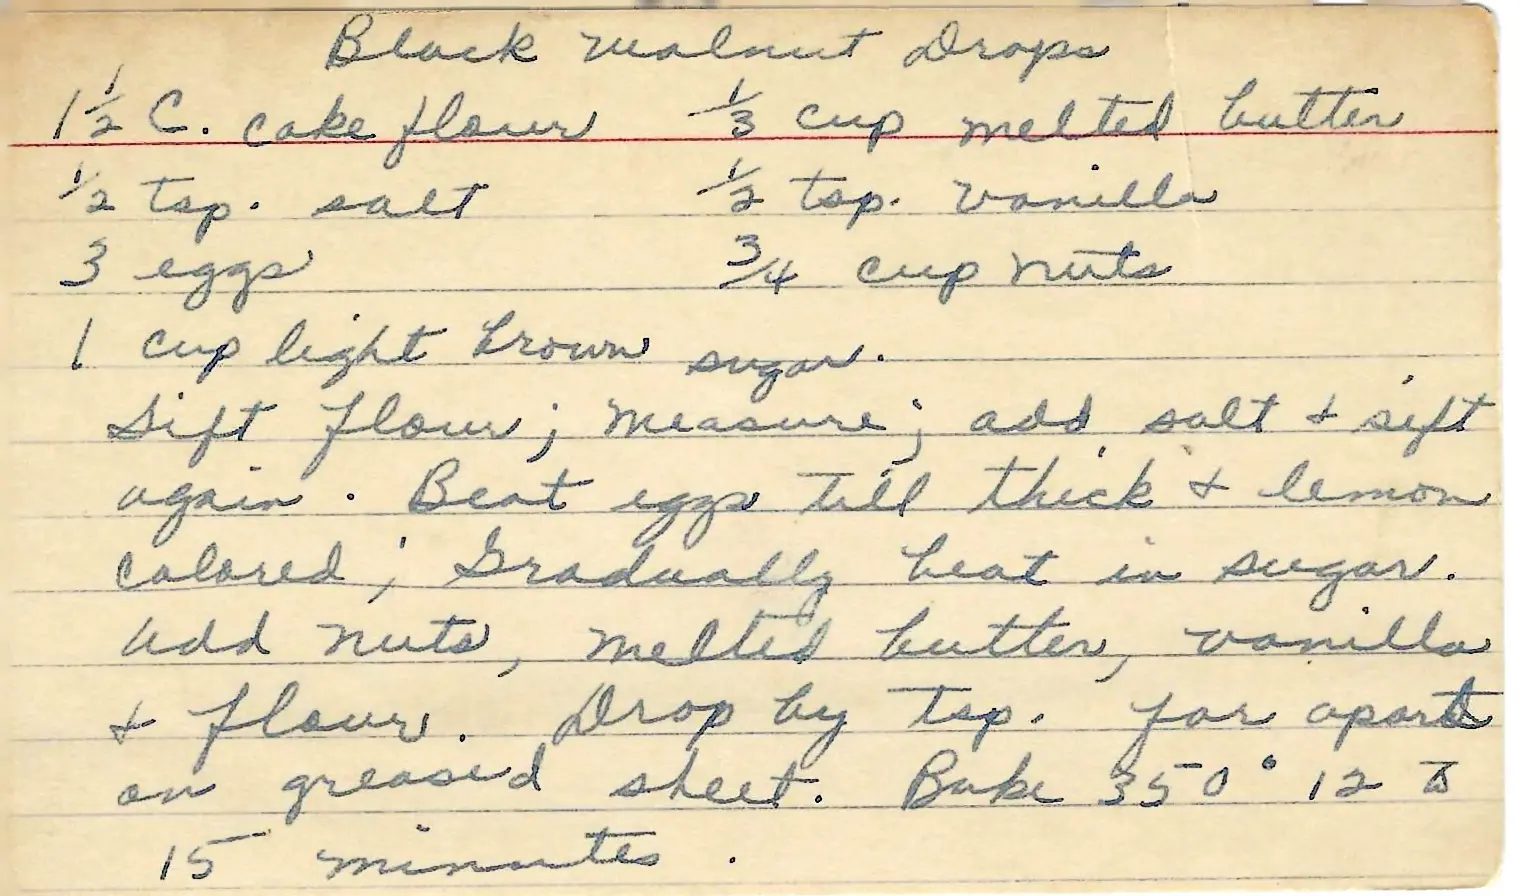 Black Walnut Drops
1 1/2 C. cake flour 1/3 cup melted butter
1/2 tsp. salt 1/2 tsp. vanilla
3 eggs 3/4 cup nuts
1 cup light brown sugar.
Sift flour; measure; add salt + sift
again. Beat eggs till thick + lemon
colored; Gradually beat in sugar.
Add nuts, melted butter, vanilla
+ flour. Drop by tsp. far apart
on greased sheet. Bake 350° 12 to
15 minutes.